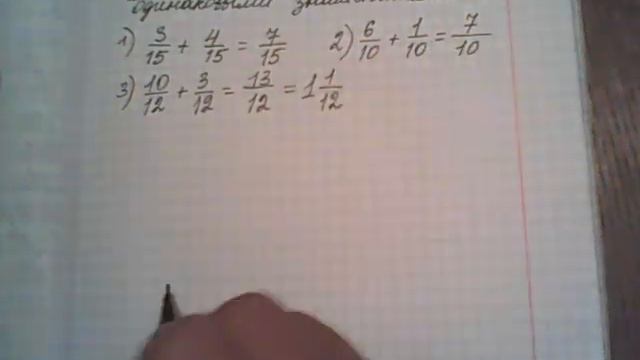 одинаковыми
1) 3/15 + 4/15 = 7/15 2) 6/10 + 1/10 = 7/10
3) 10/12 + 3/12 = 13/12 = 1 1/12